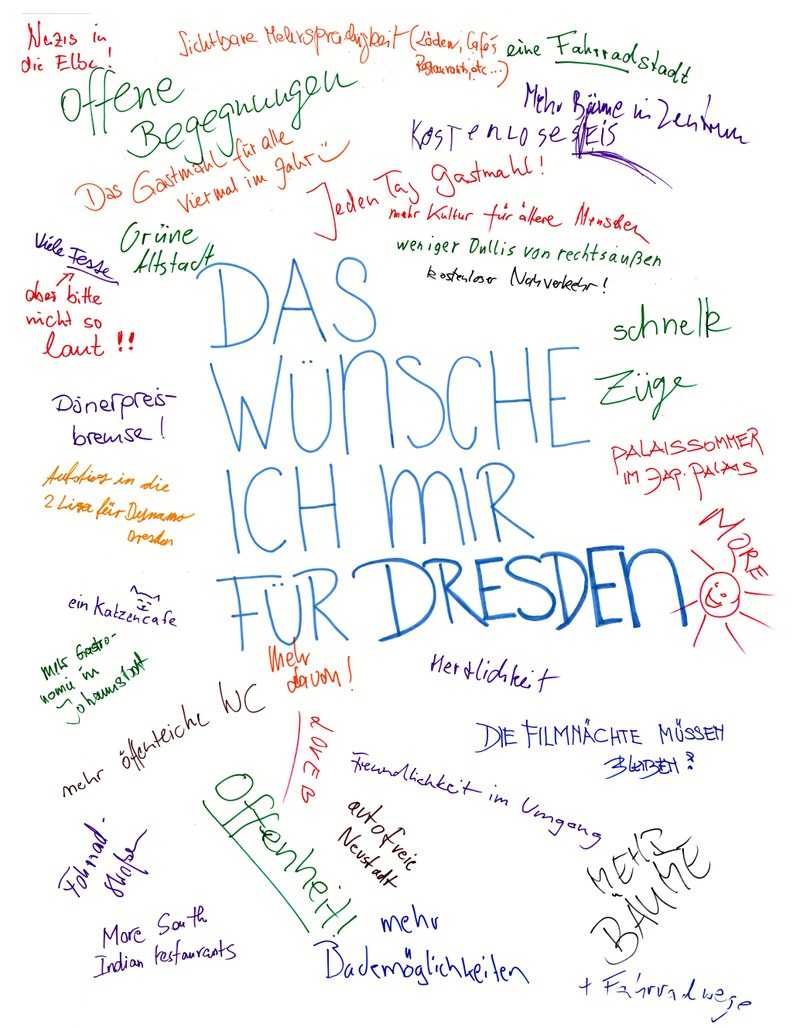 Nazis in
die Elbe!
Sichtbare Mehrsprachigkeit (Läden, Cafés
Restaurants, etc...)
eine Fahrradstadt
Offene
Begegnungen
Mehr Bäume in Zentrum
KOSTENLOSES EIS
Das Gastmahl für alle
viermal im Jahr
Jeden Tag Gastmahl!
mehr Kultur für ältere Menschen
weniger Dullis von rechtsaußen
kostenloser Nahverkehr!
Viele Feste
aber bitte
nicht so
laut !!
Grüne
Altstadt
DAS
WÜNSCHE
ICH MIR
FÜR DRESDEN
schnelle
Züge
Dönerpreis-
bremse!
PALAISSOMMER
IM JAP. PALAIS
Aufstieg in die
2 Liga für Dynamo
Dresden
MORE
ein Katzencafe
Mehr Gastro-
nomie in
Johannstadt
Mehr
davon!
Herzlichkeit
mehr öffentliche WC
LOVE
DIE FILMNÄCHTE MÜSSEN
BLEIBEN!
Freundlichkeit im Umgang
Offenheit!
autofreie
Neustadt
Fahrrad-
MEHR
BÄUME
More South
Indian restaurants
mehr
Bademöglichkeiten
+ Fahrradwege